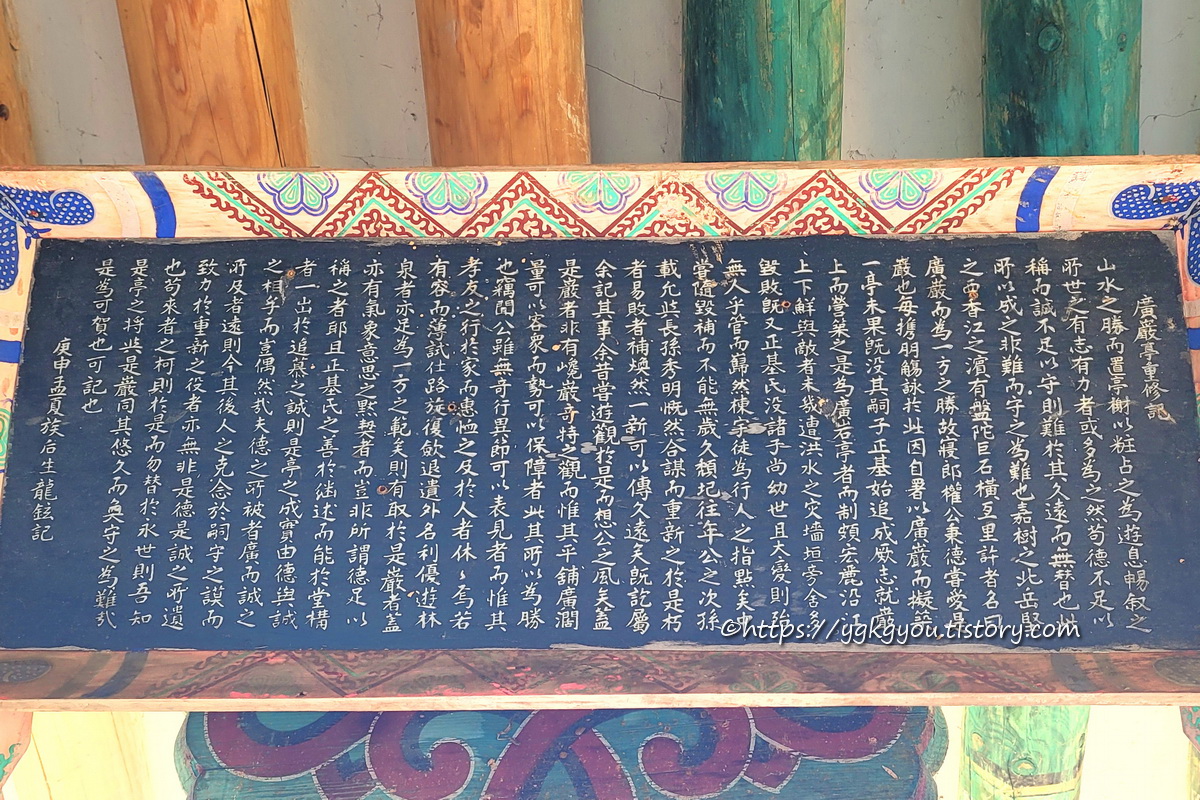 廣嚴亭重修記
山水之勝而置亭榭以粧占之為遊息暢叙之
所世之有志有力者或多為之然苟德不足以
稱而誠不足以守則難於其久遠而無替也此
所以成之非難而守之為難也嘉樹之北岳堅
之西香江之濱有盤陀巨石橫亙里許者名曰
廣嚴而為一方之勝故寢郎權公秉德嘗愛是
嚴也每携朋觴詠於此因自署以廣嚴而擬築
一亭未果旣沒其嗣子正基始追成厥志就嚴
上而營築之是為廣岩亭者而制頗宏麗沿江
上下鮮與敵者未幾遭洪水之灾墻垣旁舍多
毀敗旣又正基氏沒諸子尚幼世且大變則殆
無人乎管而巋然棟宇徒為行人之指點矣
嘗隨毀補而不能無歲久頹圮往年公之次孫
載允甫長孫秀明慨然合謀而重新之於是朽
者易敗者補煥然一新可以傳久遠矣旣訖屬
余記其事余昔嘗遊觀於是而想公之風矣盖
是嚴者非有巉嚴奇持之觀而惟其平鋪廣濶
量可以容衆而勢可以保障者此其所以為勝
也竊聞公雖無奇行異節可以表見者而惟其
孝友之行於家而惠恤之及於人者休〻焉若
有容而薄試仕路旋復斂退遺外名利優遊林
泉者亦足為一方之範矣則有取於是嚴者盖
亦有氣象意思之黙契者而豈非所謂德足以
稱之者耶且正基氏之善於継述而能於堂構
者一出於追慕之誠則是亭之成實由德與誠
之相孚而豈偶然㢤夫德之所被者廣而誠之
所及者遠則今其後人之克念於嗣守之謨而
致力於重新之役者亦無非是德是誠之所遺
也苟來者之柯則於是而勿替於永世則吾知
是亭之將與是嚴同其悠久而奚守之為難㢤
是為可賀也可記也
庚申孟夏族后生龍鉉記
©https://ygkgyou.tistory.com